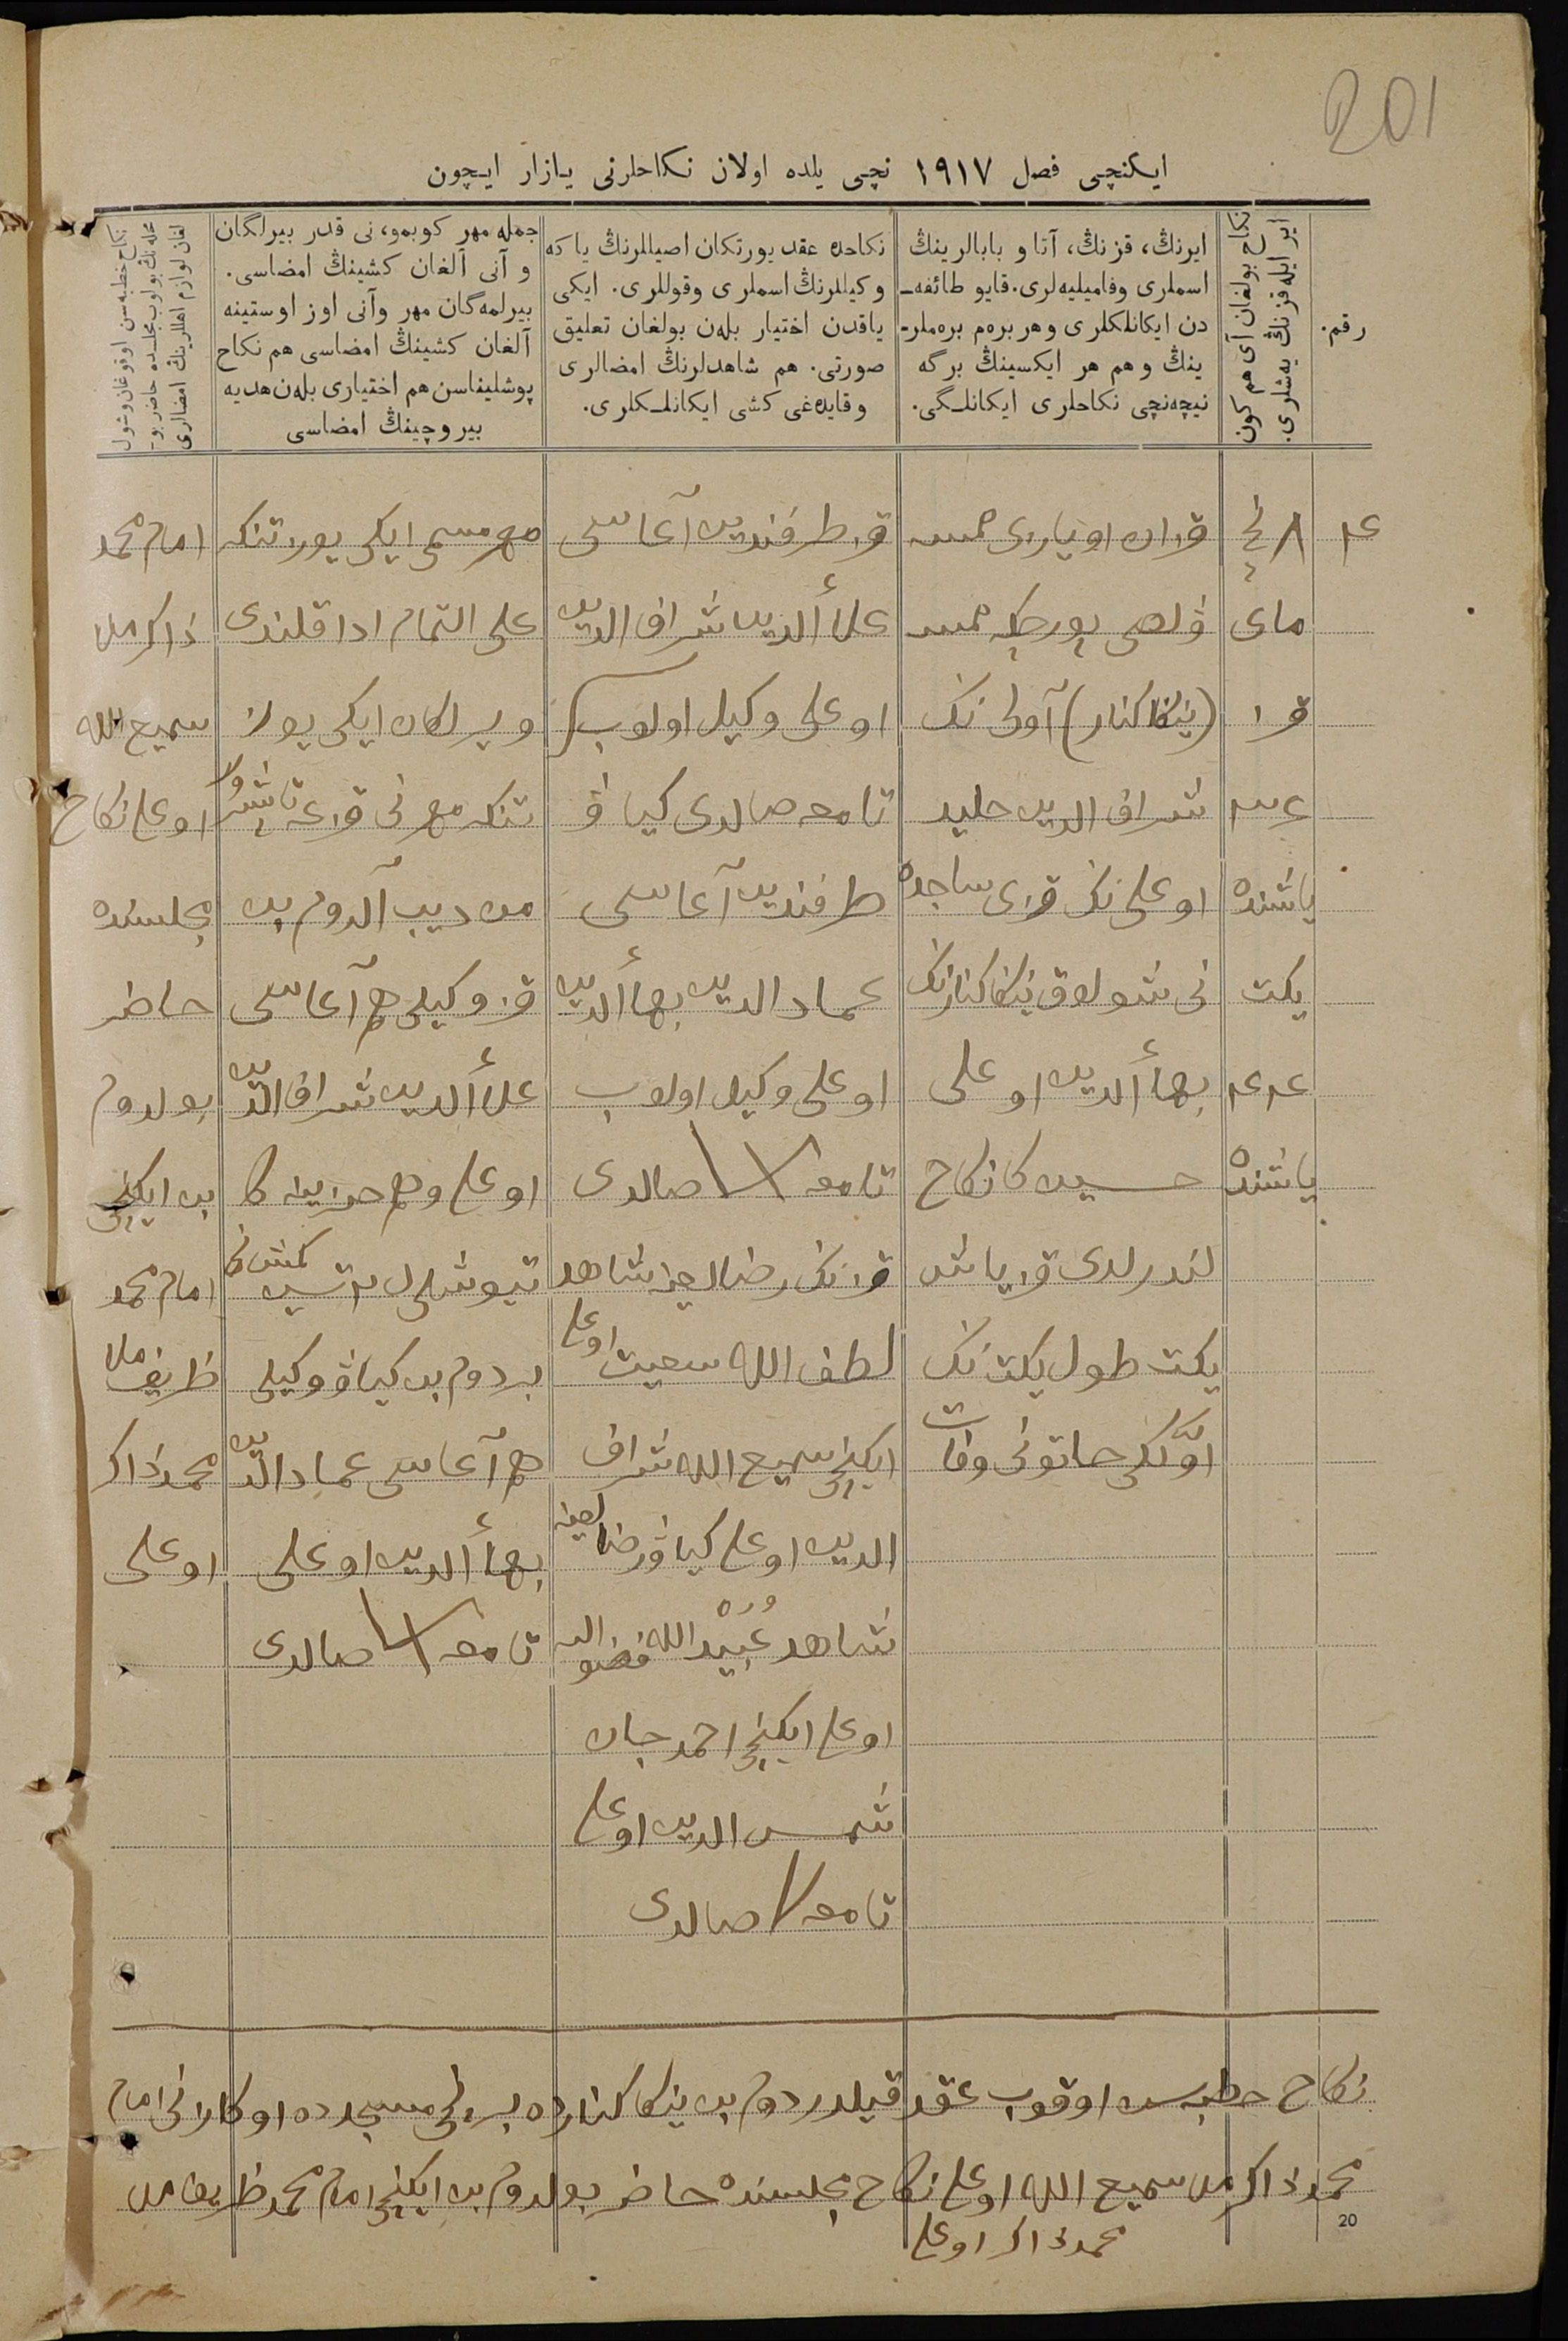 201
ایکنچی فصل ۱۹۱۷ نچی یلده اولان نکاحلرنی یازار ایچون
رقم.
نکاح بولغان آی هم کون
ایر ایله قزنڭ یەشلری.
ایرنڭ، قزنڭ، آتا و بابالرینڭ
اسملری وفامیلیەلری. قایو طائفه‌ـ
دن ایکانلکلری و هر برەم برەملرـ
ینڭ و هم هر ایکسینڭ برگه
نیچەنچی نکاحلری ایکانلـگی.
نکاحده عقد یورتکان اصیللرنڭ یا که
وکیللرنڭ اسملری وقوللری. ایکی
یاقدن اختیار بلەن بولغان تعلیق
صورتی. هم شاهدلرنڭ امضالری
وقایدەغی کشی ایکانلـکلری.
جمله مهر کوبمو، نی قدر بیرلگان
و آنی آلغان کشینڭ امضاسی.
بیرلمەگان مهر وآنی اوز اوستینه
آلغان کشینڭ امضاسی هم نکاح
پوشلیناسن هم اختیاری بلەن هدیه
بیروچینڭ امضاسی
نکاح خطبەسن اوقوغان وشول
محلەنڭ بولوب مجلسده حاضر بوـ
لغان لوازم اهللرینڭ امضالری
۴
۸ نچی
مای
قز ۱
۳۴
یاشنده
یکت
۴۴
یاشنده
قزان اویازی
(ینکا کنار) آولی ننک
شراف الدین
اوغلی ننک قزی ساجده
نی شولوق ینکا کنارننک
بهاءالدین اوغلی
حسین کا نکاح
لندرلدی قز یاش
یکت طول یکت ننک
اوّلکی خاتونی وفات
قز طرفندین آغاسی
علاءالدین شراف الدین
اوغلی وکیل اولوب
تامغه صالدی کیاو
طرفندین آغاسی
عماد الدین بهاءالدین
اوغلی وکیل اولوب
تامغه صالدی
قزننک رضالغینه شاهد
لطف الله سعیت اوغلی
ایکنچی سمیع الله شراف
الدین اوغلی کیاو رضالغینه
شاهد عُبَیْد الله
اوغلی ایکنچی احمد جان
شمس الدین اوغلی
تامغه صالدی
مهر مسمی ایکی یوز تنکه
علی التمام ادا قلندی
ویرلکان ایکی یوز
تنکه مهرنی قزغه تابشرو
من دیب آلدوم بن
قز وکیلی هم آغاسی
علاءالدین شراف الدین
اوغلی وهم خزینه کا
بردوم بن کیاو وکیلی
هم آغاسی عماد الدین
بهاءالدین اوغلی
تامغه صالدی
امام محمد
ذاکر ملا
سمیع الله
اوغلی نکاح
مجلسنده
حاضر
بولدوم
بن ایکنچی
امام محمد
ظریف ملا
محمد ذاکر
اوغلی
نکاح خطبه سن اوقوب عقد قیلدردوم بن ینکا کنارده برنچی مسجدده امام
محمد ذاکر ملا سمیع الله اوغلی نکاح مجلسنده حاضر بولدوم بن ایکنچی امام محمد ظریف ملا
محمد ذاکر اوغلی
20